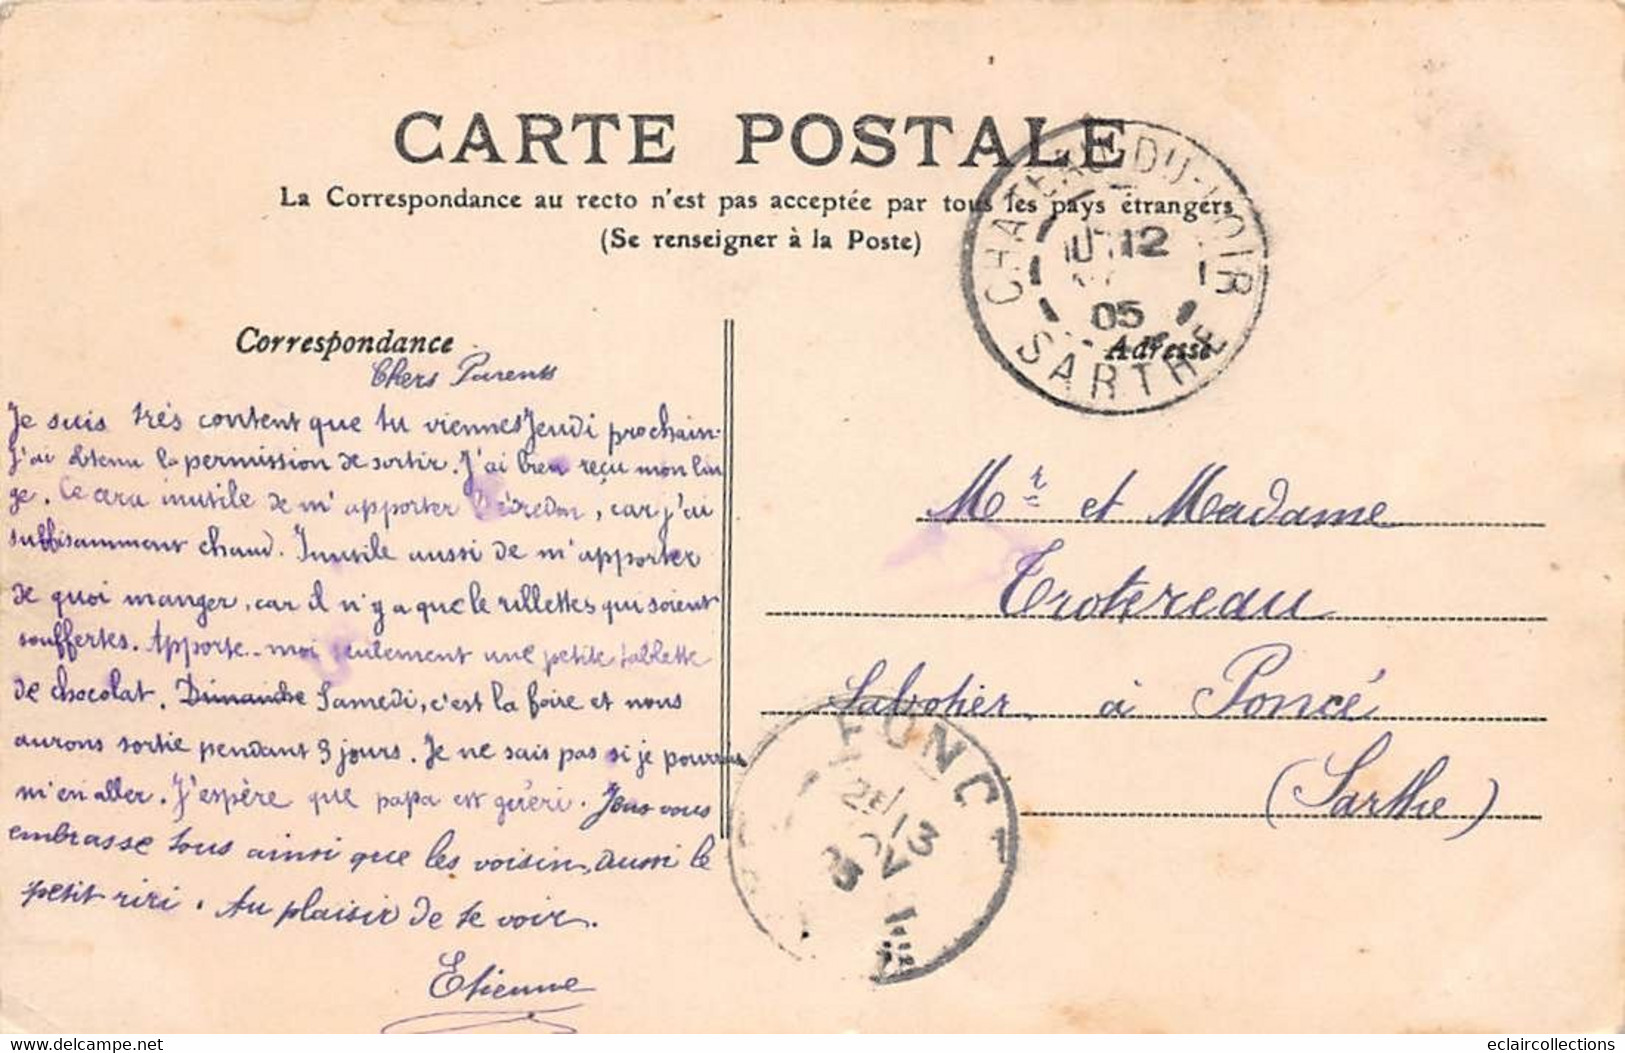 CARTE POSTALE
La Correspondance au recto n'est pas acceptée par tous les pays étrangers
(Se renseigner à la Poste)
CHATEAU-DU-LOIR
12
05
SARTHE
Correspondance
Adresse
Chers Parents
Je suis très content que tu viennes Jeudi prochain.
J'ai obtenu la permission de sortir. J'ai bien reçu mon lin
ge. Ce sera inutile de m'apporter l'édredon, car j'ai
suffisamment chaud. Inutile aussi de m'apporter
de quoi manger, car il n'y a que le rillettes qui soient
souffertes. Apporte-moi seulement une petite tablette
de chocolat. Dimanche Samedi, c'est la foire et nous
aurons sortie pendant 3 jours. Je ne sais pas si je pourrai
m'en aller. J'espère que papa est guéri. Je vous
embrasse tous ainsi que les voisin, aussi le
petit riri. Au plaisir de te voir.
Etienne
Mr et Madame
Trotereau
Sabotier à Poncé
(Sarthe)
PONC
2E
13
eclaircollections
www.delcampe.net